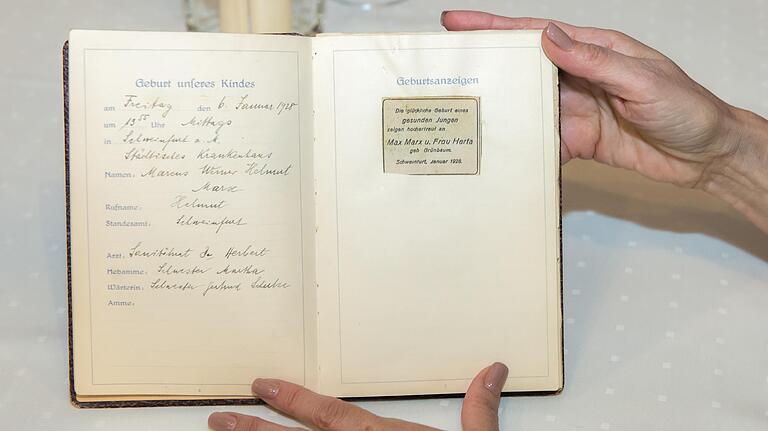 Geburt unseres Kindes
am Freitag den 6. Januar 1928
um 13⁵⁵ Uhr Mittags
in Schweinfurt a. M.
Städtisches Krankenhaus
Namen: Marcus Werner Helmut
Marx
Rufname: Helmut
Standesamt: Schweinfurt
Arzt: Sanitätsrat Dr. Herbert
Hebamme: Schwester Martha
Wärterin: Schwester Gertrud
Amme:
Geburtsanzeigen
Die glückliche Geburt eines
gesunden Jungen
zeigen hocherfreut an
Max Marx u. Frau Herta
geb Grünbaum.
Schweinfurt, Januar 1928.